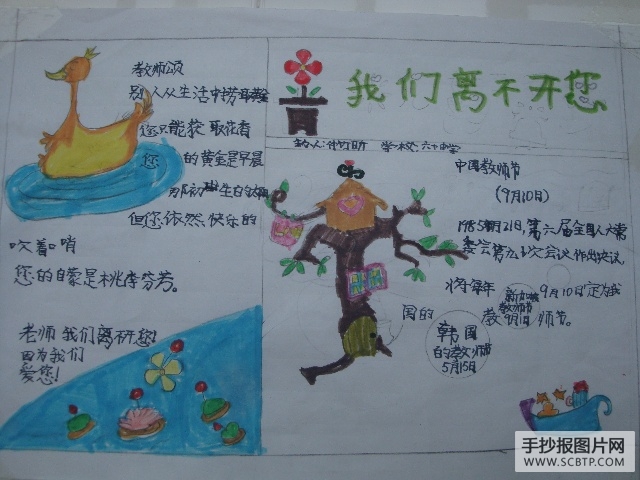 我们离不开您
教师颂
别人从生活中
您只能获取花香
您 的黄金是早晨
那初 生的
但您依然快乐的
吹着口哨
您的 是桃李芬芳。
老师 我们离 开您!
因为我们
爱您!
学校:六十中学
中国教师节
(9月10日)
第六届全国人大常
委会第九次会议作出决议,
将每年 9月10日定为我
国的 教 师节。
韩国
的教师节
5月15日
手抄报图片网
WWW.SCBTP.COM